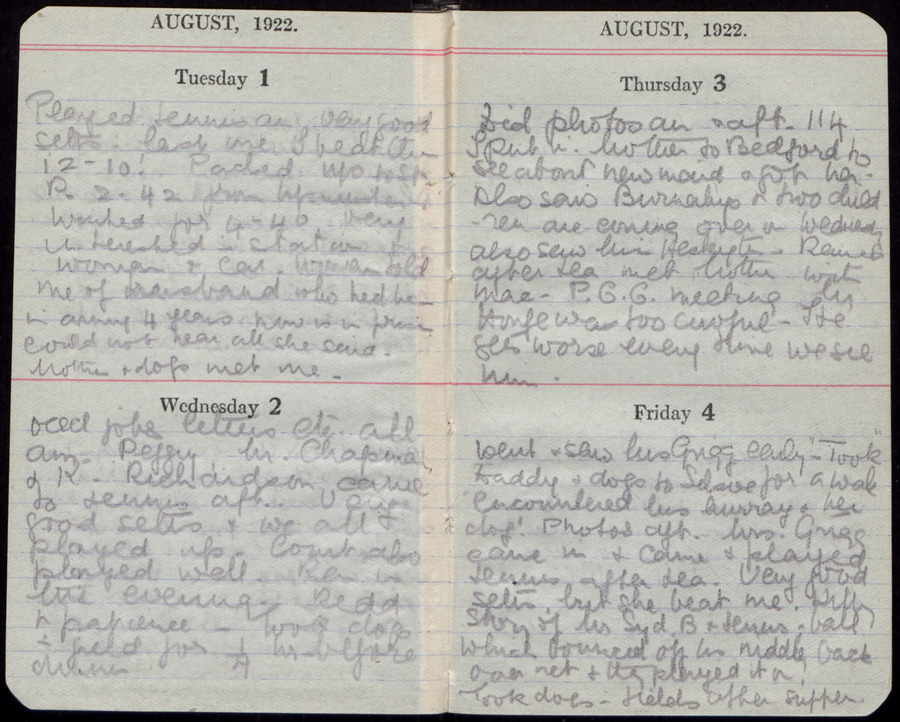 AUGUST, 1922.
Tuesday 1
Played tennis am very good
setts. last one I beat
12-10! Packed up
2-42 from
waited for 4-40 very
interested in
woman + car. Woman told
me of husband who had
in army 4 years now is in
could not hear all she said.
Mother + dogs met me.
Wednesday 2
Odd jobs letters etc. all
am. Peggy Mr. Chapman
& K. Richardson came
to tennis aft. Very
good setts + we all
played up. Court also
played well. Ran in
the evening. Read
+ patience - took dogs
+ field for ½ hr before
dinner
AUGUST, 1922.
Thursday 3
Did photos am + aft. 114
Mother to Bedford to
see about new maid + got her.
Also saw Burnabys + two child
-ren are coming over on Wednesday
also saw Rained
after tea met Mother with
Mac - P.G.G. meeting
was too awful - He
gets worse every time we see
him.
Friday 4
Went + saw Mrs Grigg early - Took
Daddy + dogs to for a walk
Encountered Mrs Murray + her
dog! Photos aft. Mrs. Grigg
came in + came + played
tennis after tea. Very good
setts, but she beat me.
Story of Mr Syd. B + tennis-ball
which bounced off his middle back
over net + they played it on!
Took dogs - fields after supper.